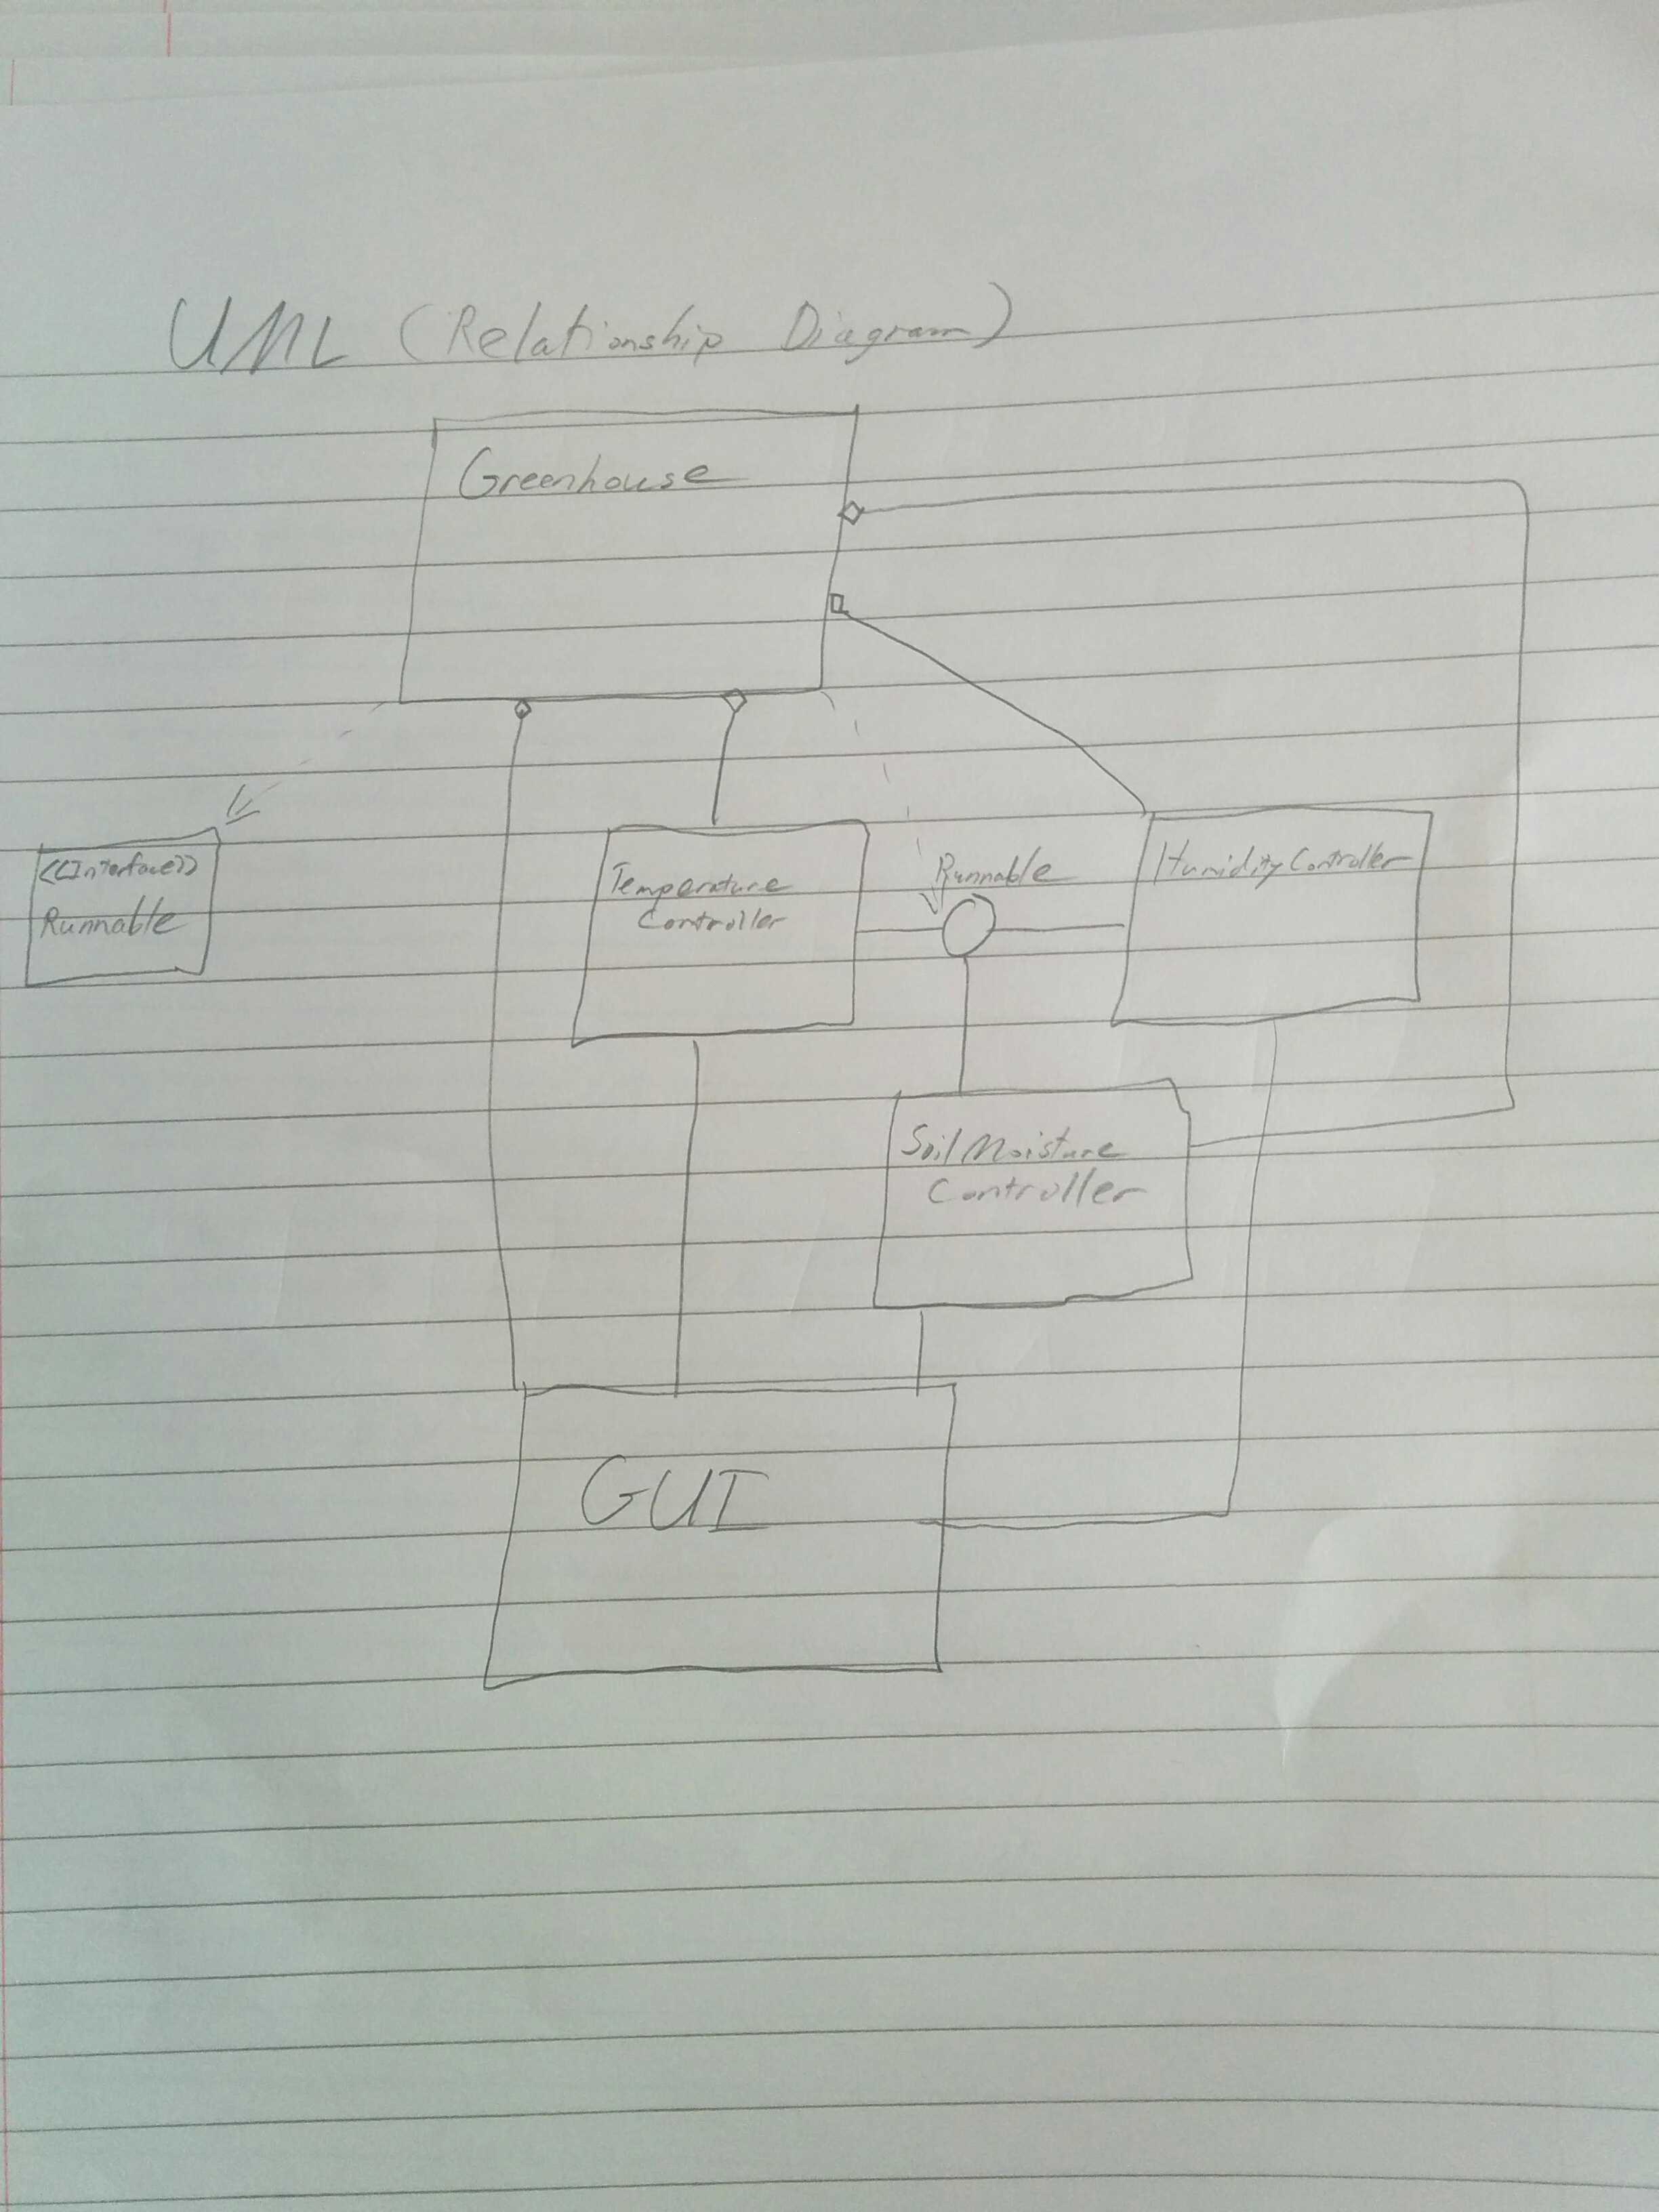 UML (Relationship Diagram)
Greenhouse
<<Interface>>
Runnable
Temperature
Controller
Runnable
Humidity Controller
Soil Moisture
Controller
GUI